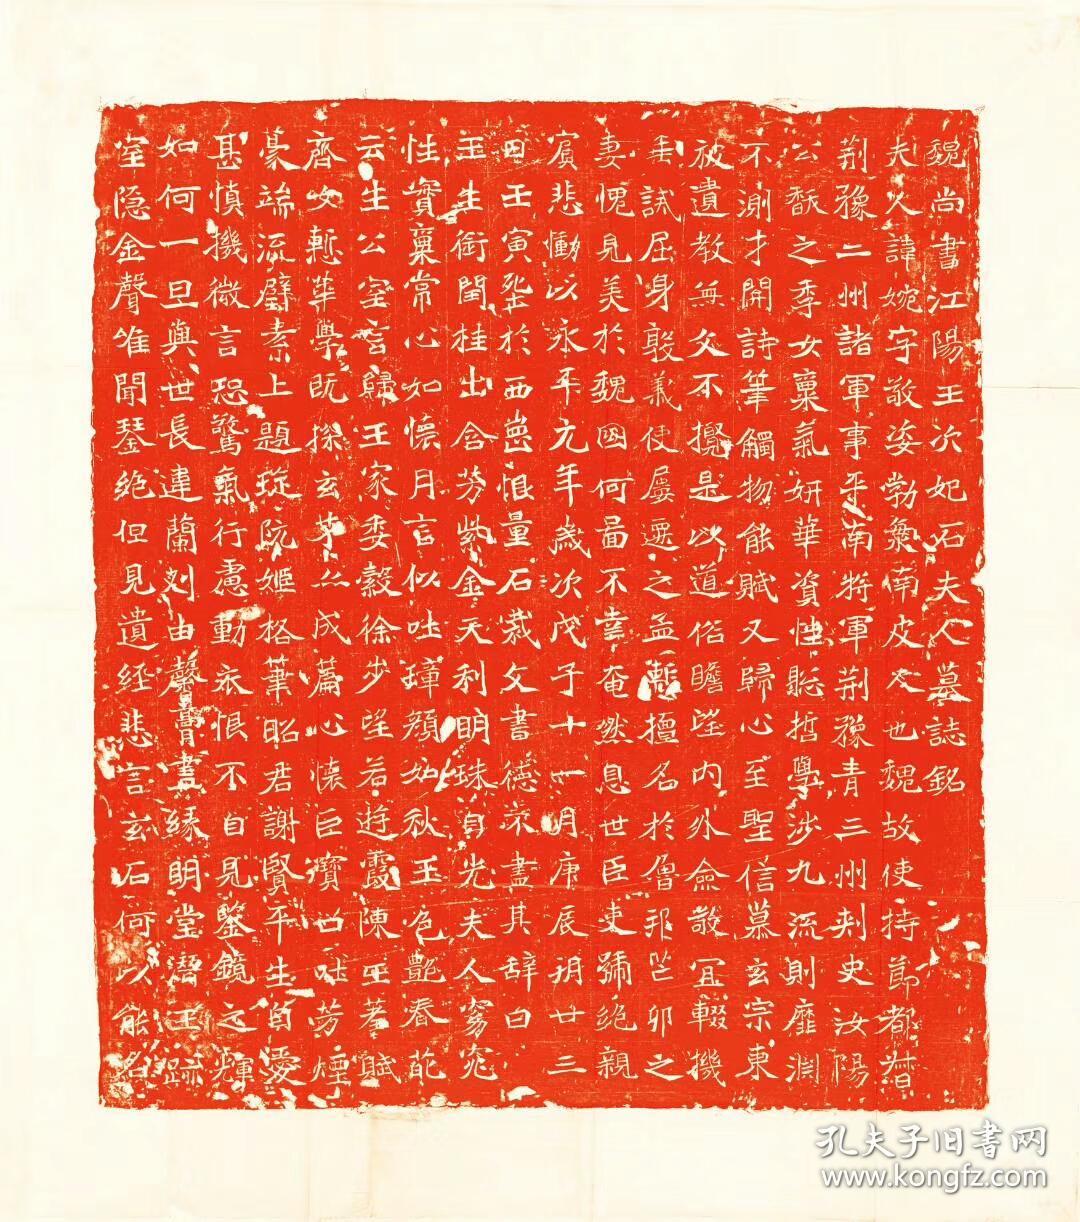 魏尚書江陽王次妃石夫人墓誌銘
夫人諱婉字敬姿勃海南皮人也魏故使持節都督
荊豫二州諸軍事平南將軍荊豫青三州刺史汝陽
公馥之季女稟氣妍華資性聡哲學涉九流則靡淵
不測才關詩筆觸物能賦又歸心至聖信慕玄宗東
被遺教無文不攬是以道俗瞻望內外僉敬宜輟機
垂誡屈身敦義使屢遷之孟慙擅名於魯邦芒卯之
妻愧見美於魏國何啚不幸奄然息世臣吏號絕親
賓悲慟以永平元年歲次戊子十一月庚辰朔廿三
日壬寅塟於西崗恨量石裁文書德未盡其辭曰
玉生衘閏桂出含芳紫金夭利明珠自光夫人窈窕
性實稟常心如懷月言似吐璋顏如秋玉色艷春葩
云生公室言歸王家委縠徐步望若遊霞陳王羞賦
齊女慙華學既採玄才亦成篇心懷巨寶口吐芳煙
豪端流璧素上題琁阮姬格筆昭君謝賢平生自愛
甚慎機微言恐驚氣行慮動衣恨不自見鑒鏡之輝
如何一旦與世長違蘭刈由馨膏盡緣明堂潛玉跡
室隐金聲唯聞琴絕但見遺經悲言玄石何以能名
孔夫子旧书网
www.kongfz.com